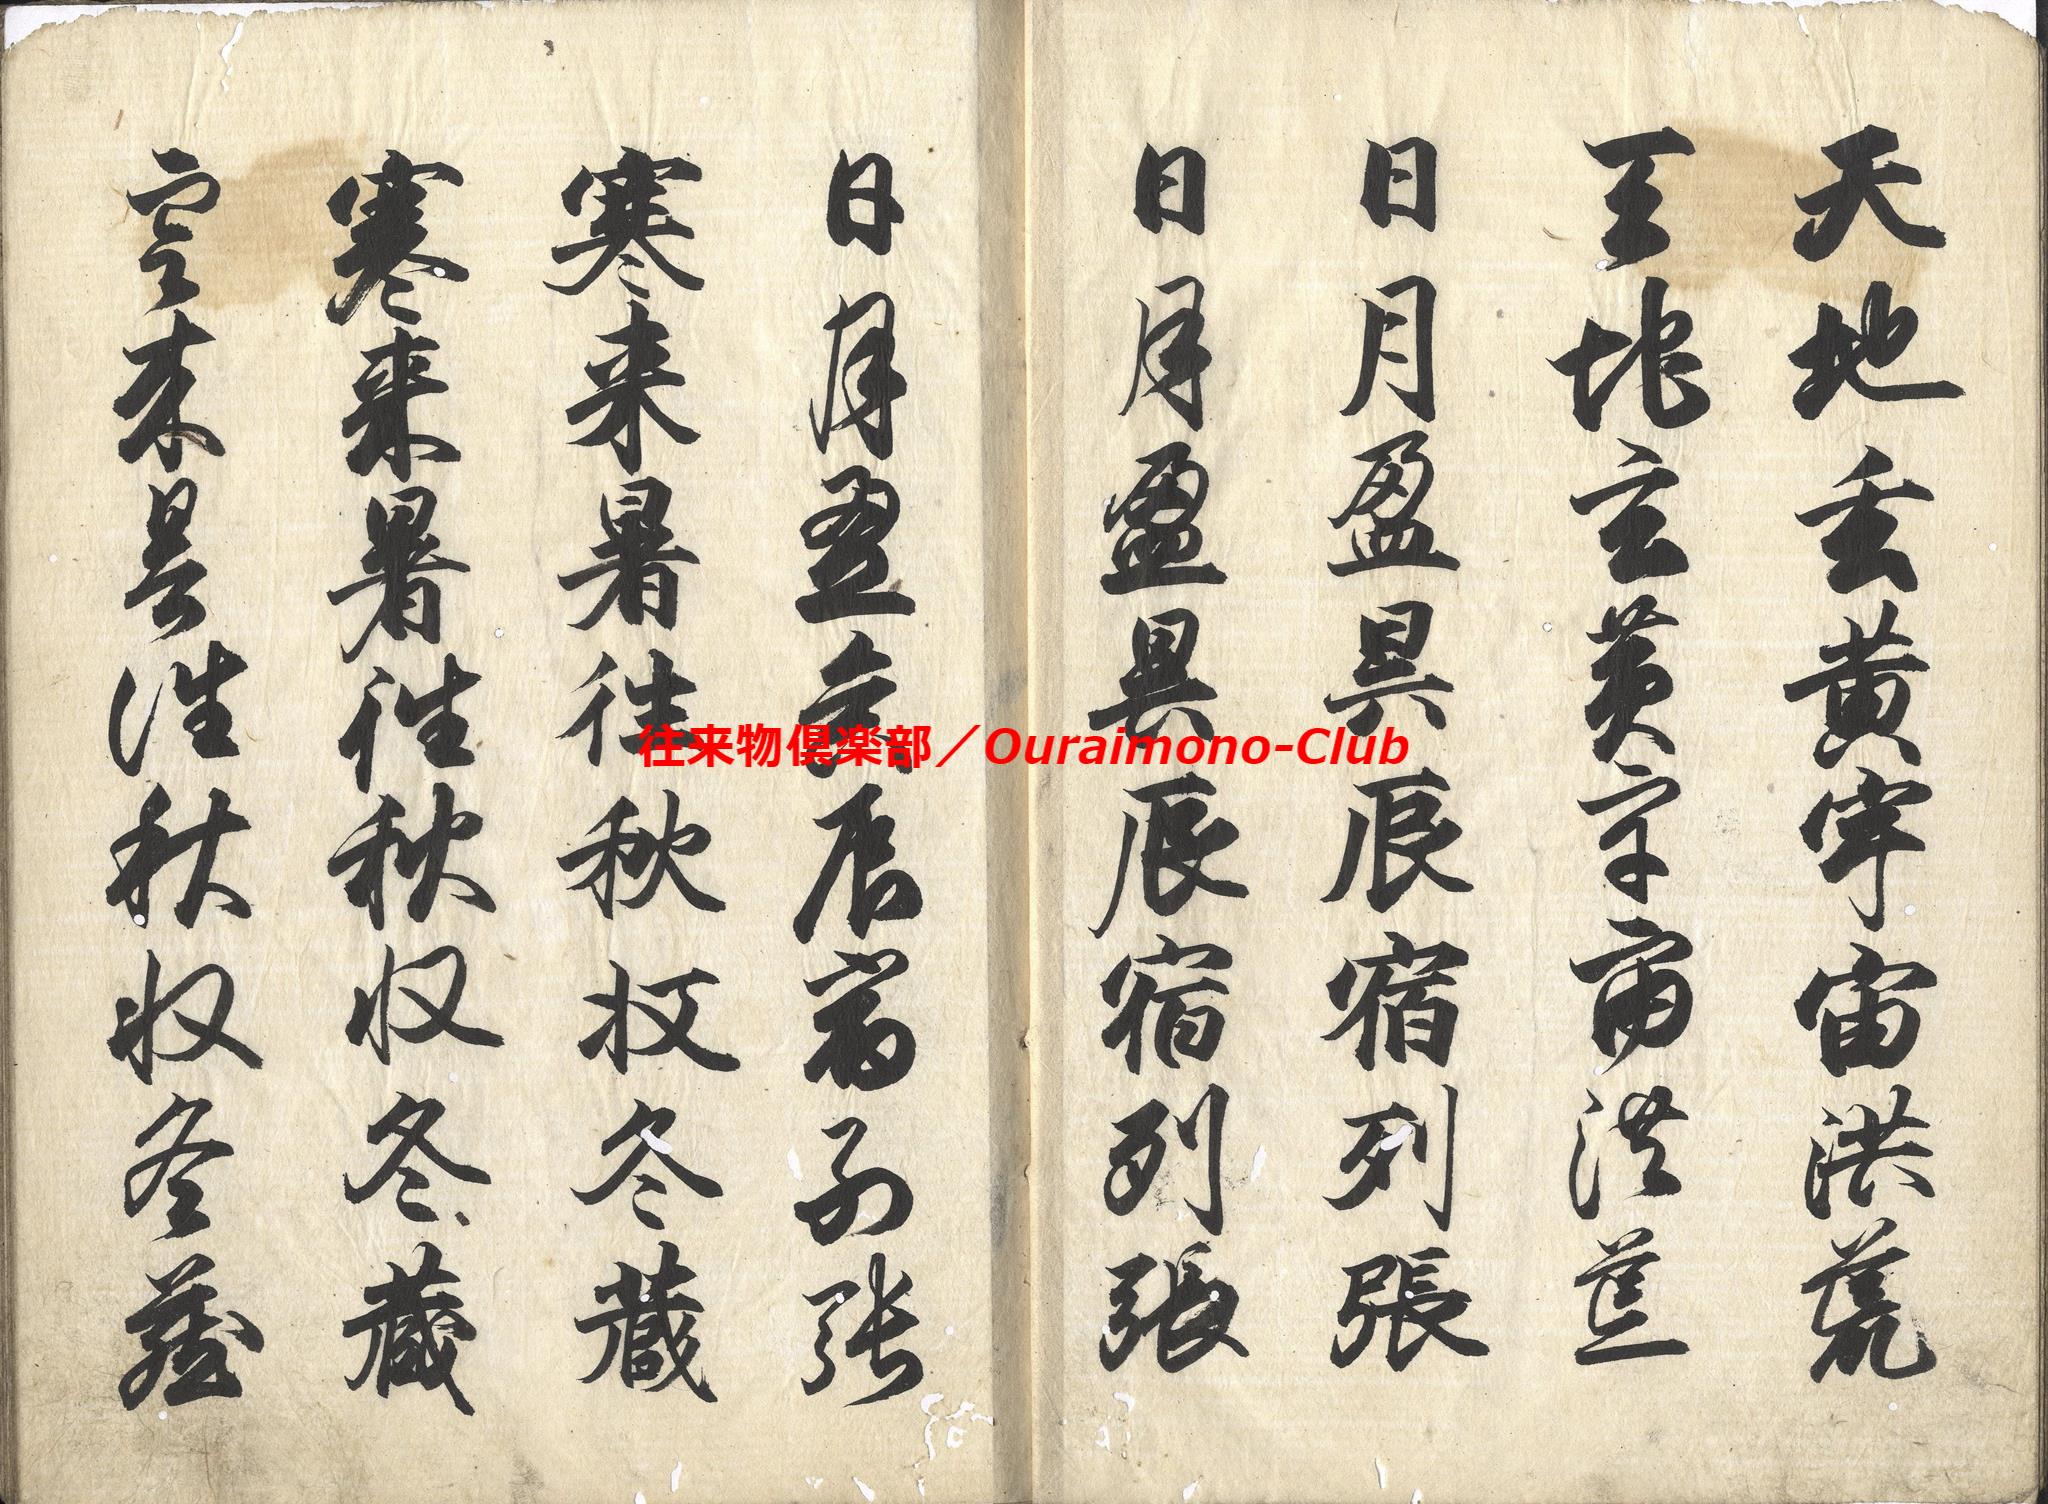 天地玄黄宇宙洪荒
天地玄黄宇宙洪荒
日月盈昃辰宿列張
日月盈昃辰宿列張
日月盈昃辰宿列張
寒来暑往秋収冬蔵
寒来暑往秋収冬蔵
寒来暑往秋収冬蔵
往来物倶楽部／Ouraimono-Club